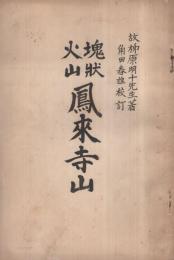 故柳原明十先生著
角田春雄校訂
塊狀
火山
鳳來寺山